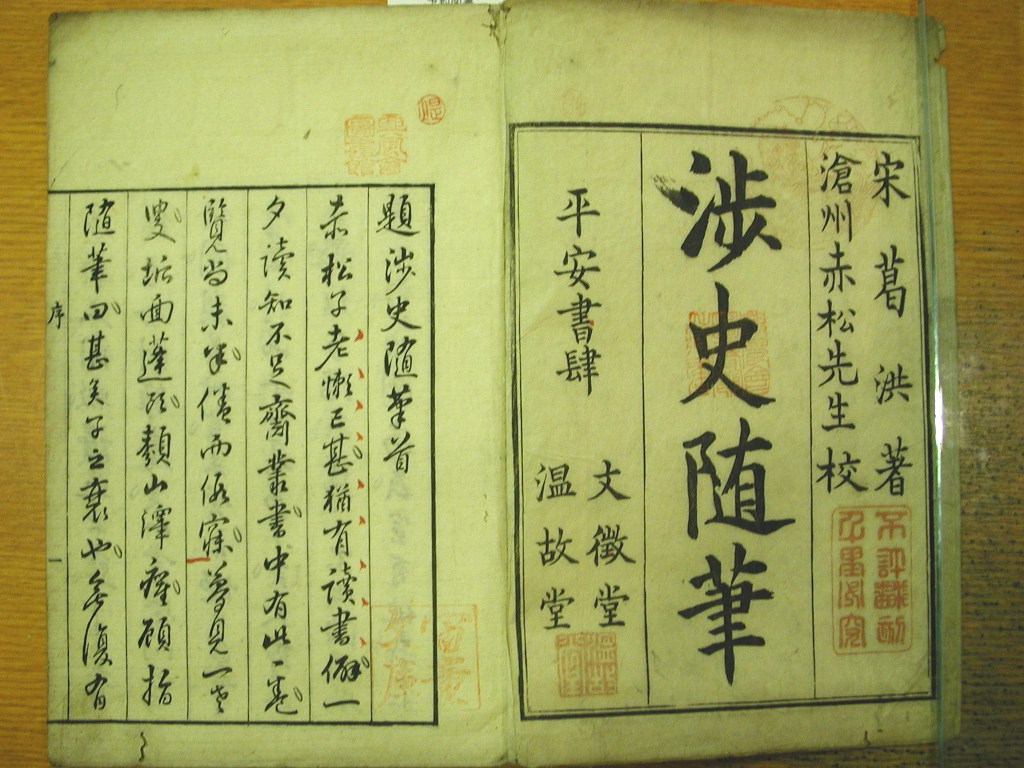 宋葛洪著
滄州赤松先生校
涉史随筆
平安書肆
文徴堂
温故堂
題涉史随筆首
赤松子老懶已甚猶有讀書癖一
夕讀知不足齋叢書中有此一卷
覽尚未半倦而假寐夢見一老
叟垢面蓬頭顙山澤癯顧指
随筆曰甚矣子之衰也無復有
序
一